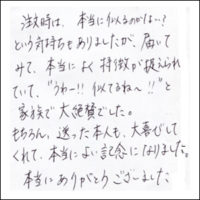 注文時は、本当に似るのかな?
という気持ちもありましたが、届いて
みて、本当によく特徴が捉えられ
ていて、"うわー!! 似てるねー!!"と
家族で大絶賛でした。
もちろん、送った本人も、大喜びして
くれて、本当によい記念になりました。
本当にありがとうございました